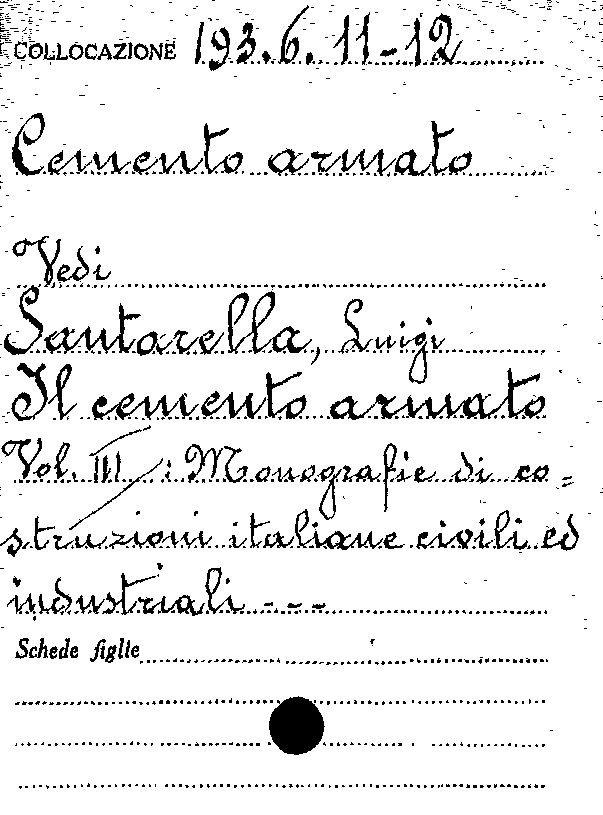 COLLOCAZIONE 193.6.11-12
Cemento armato
Vedi
Santarella, Luigi
Il cemento armato
Vol. III/: Monografie di co=
struzioni italiane civili ed
industriali ---
Schede figlie